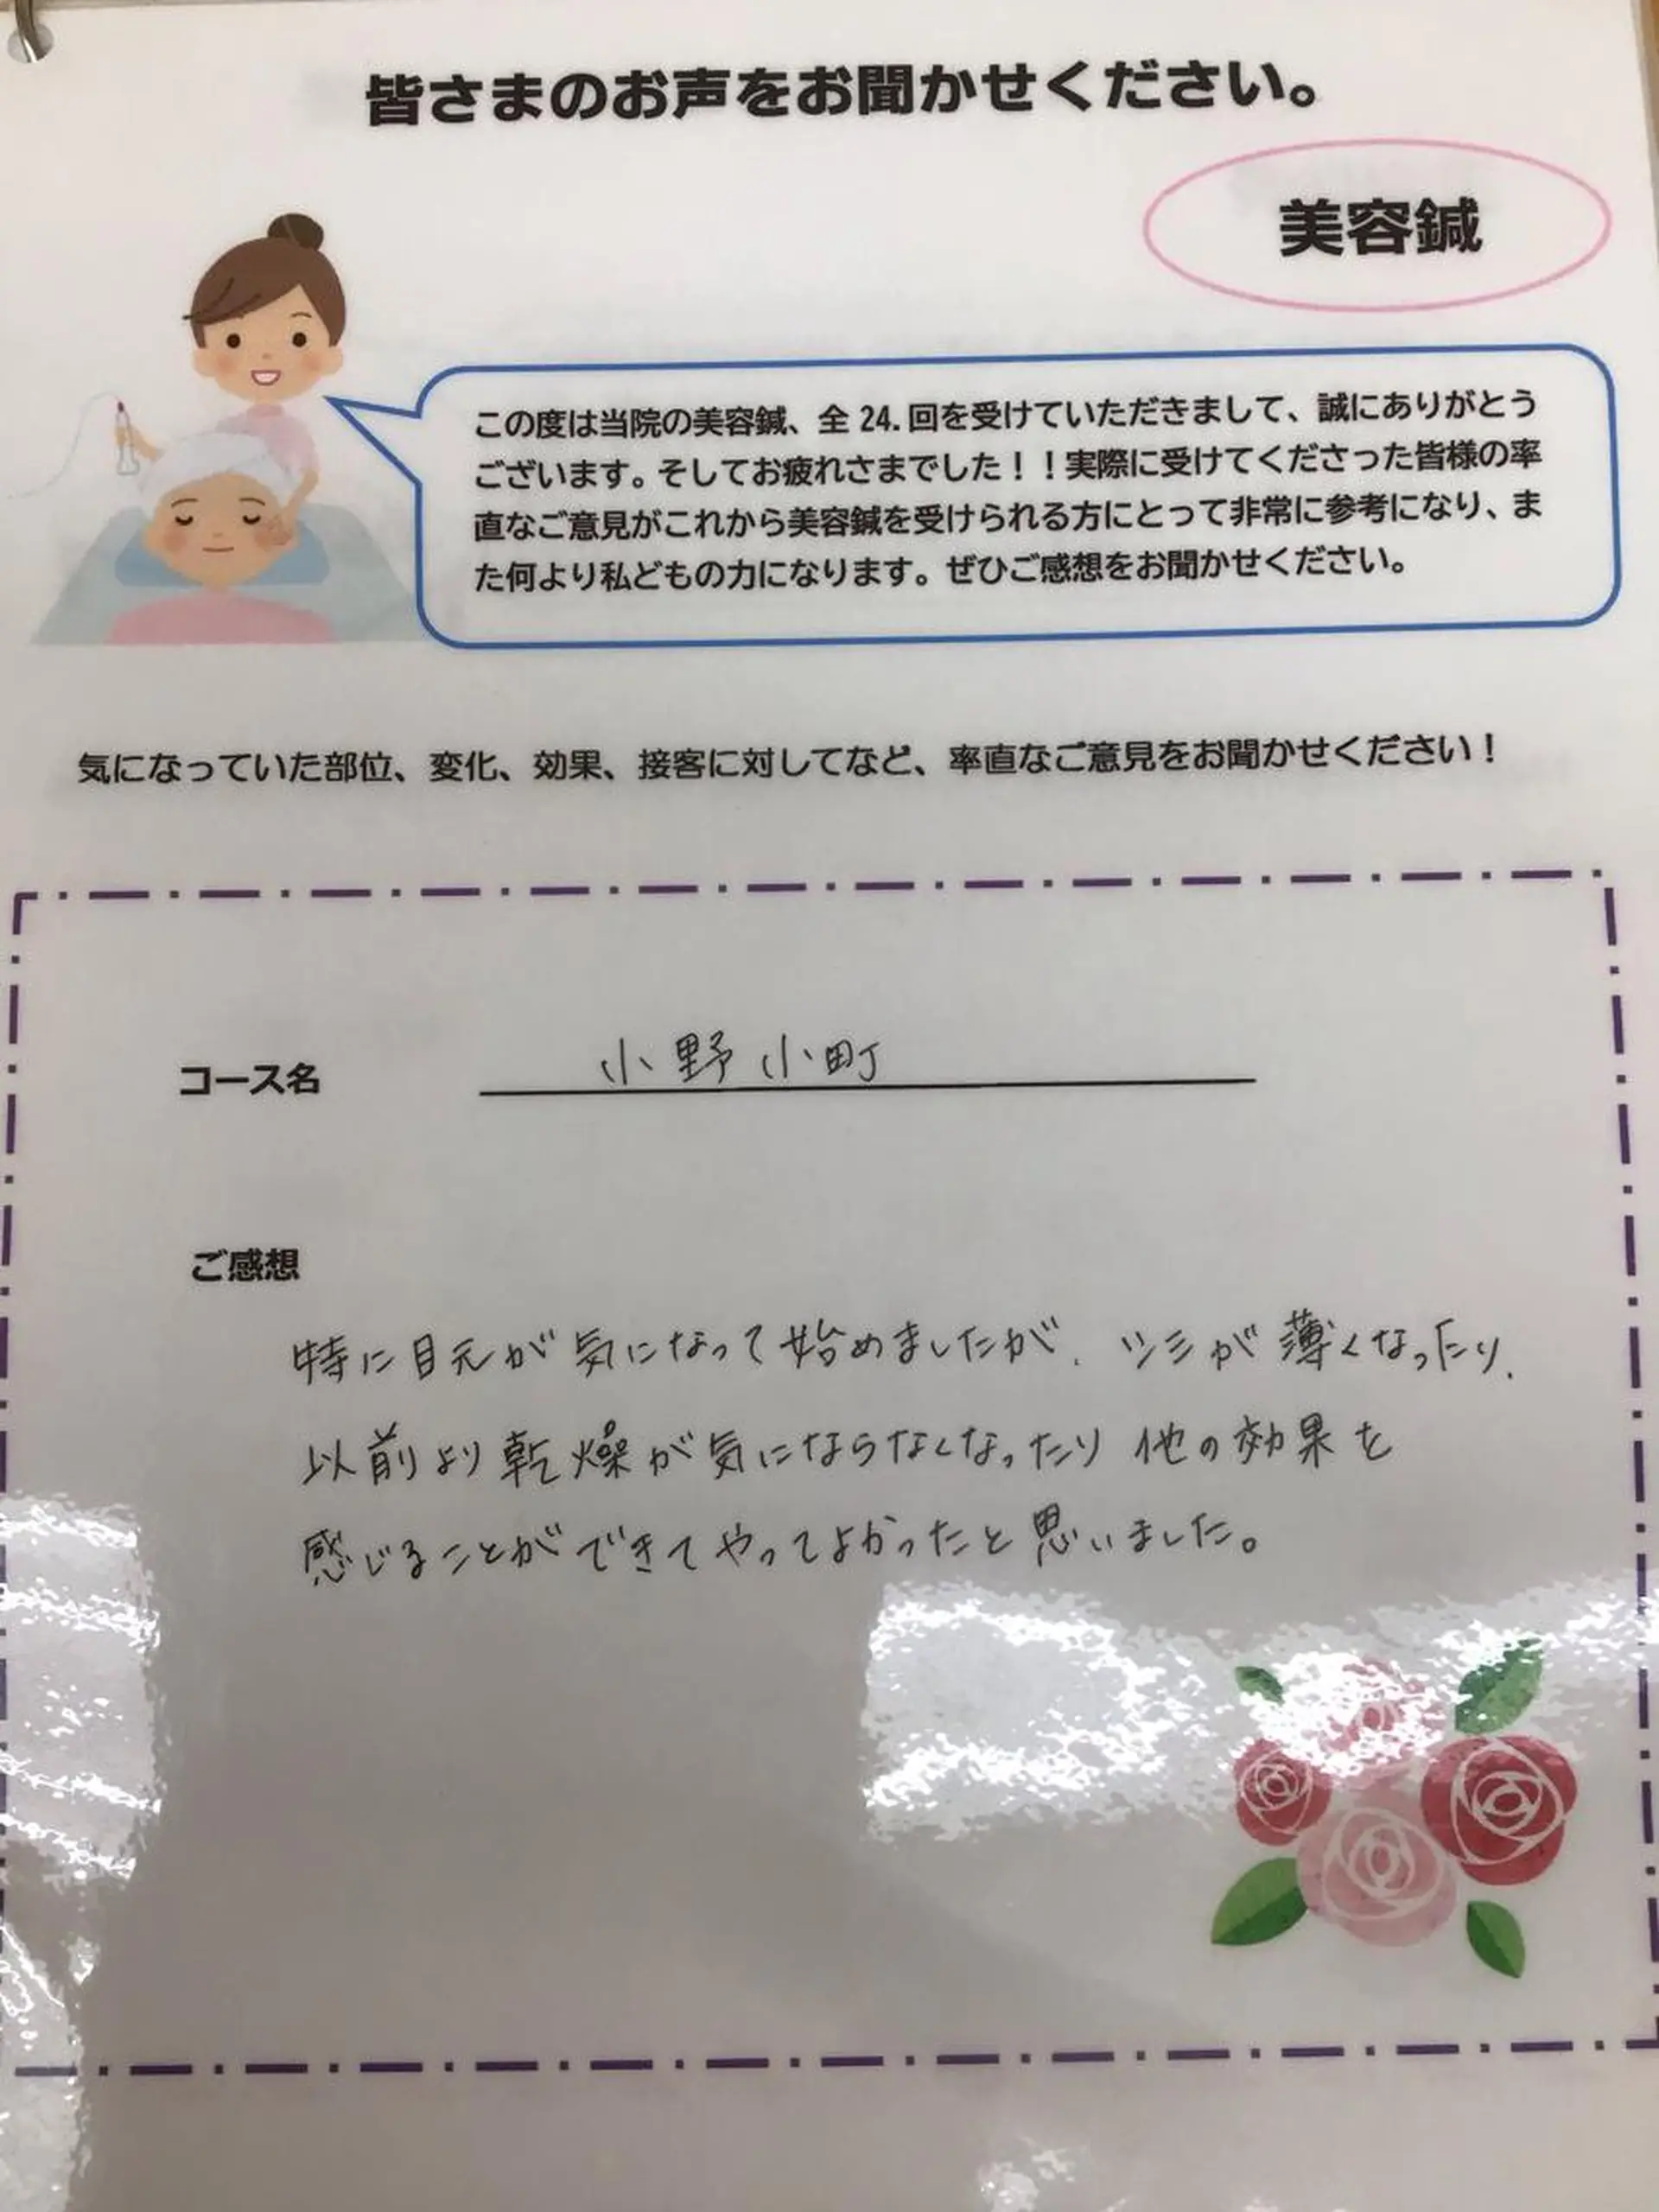 皆さまのお声をお聞かせください。
美容鍼
この度は当院の美容鍼、全24.回を受けていただきまして、誠にありがとう
ございます。そしてお疲れさまでした！！実際に受けてくださった皆様の率
直なご意見がこれから美容鍼を受けられる方にとって非常に参考になり、ま
た何より私どもの力になります。ぜひご感想をお聞かせください。
気になっていた部位、変化、効果、接客に対してなど、率直なご意見をお聞かせください！
コース名 小野小町
ご感想
特に目元が気になって始めましたが、シミが薄くなったり、
以前より乾燥が気にならなくなったり他の効果を
感じることができてやってよかったと思いました。